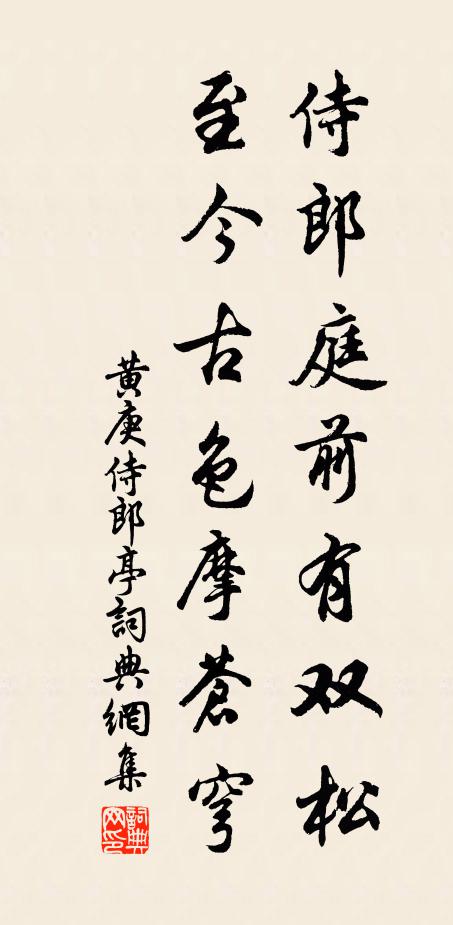 侍郎庭前有双松
至今古色摩蒼穹
黄庚侍郎亭詞典網集
詞典
网印